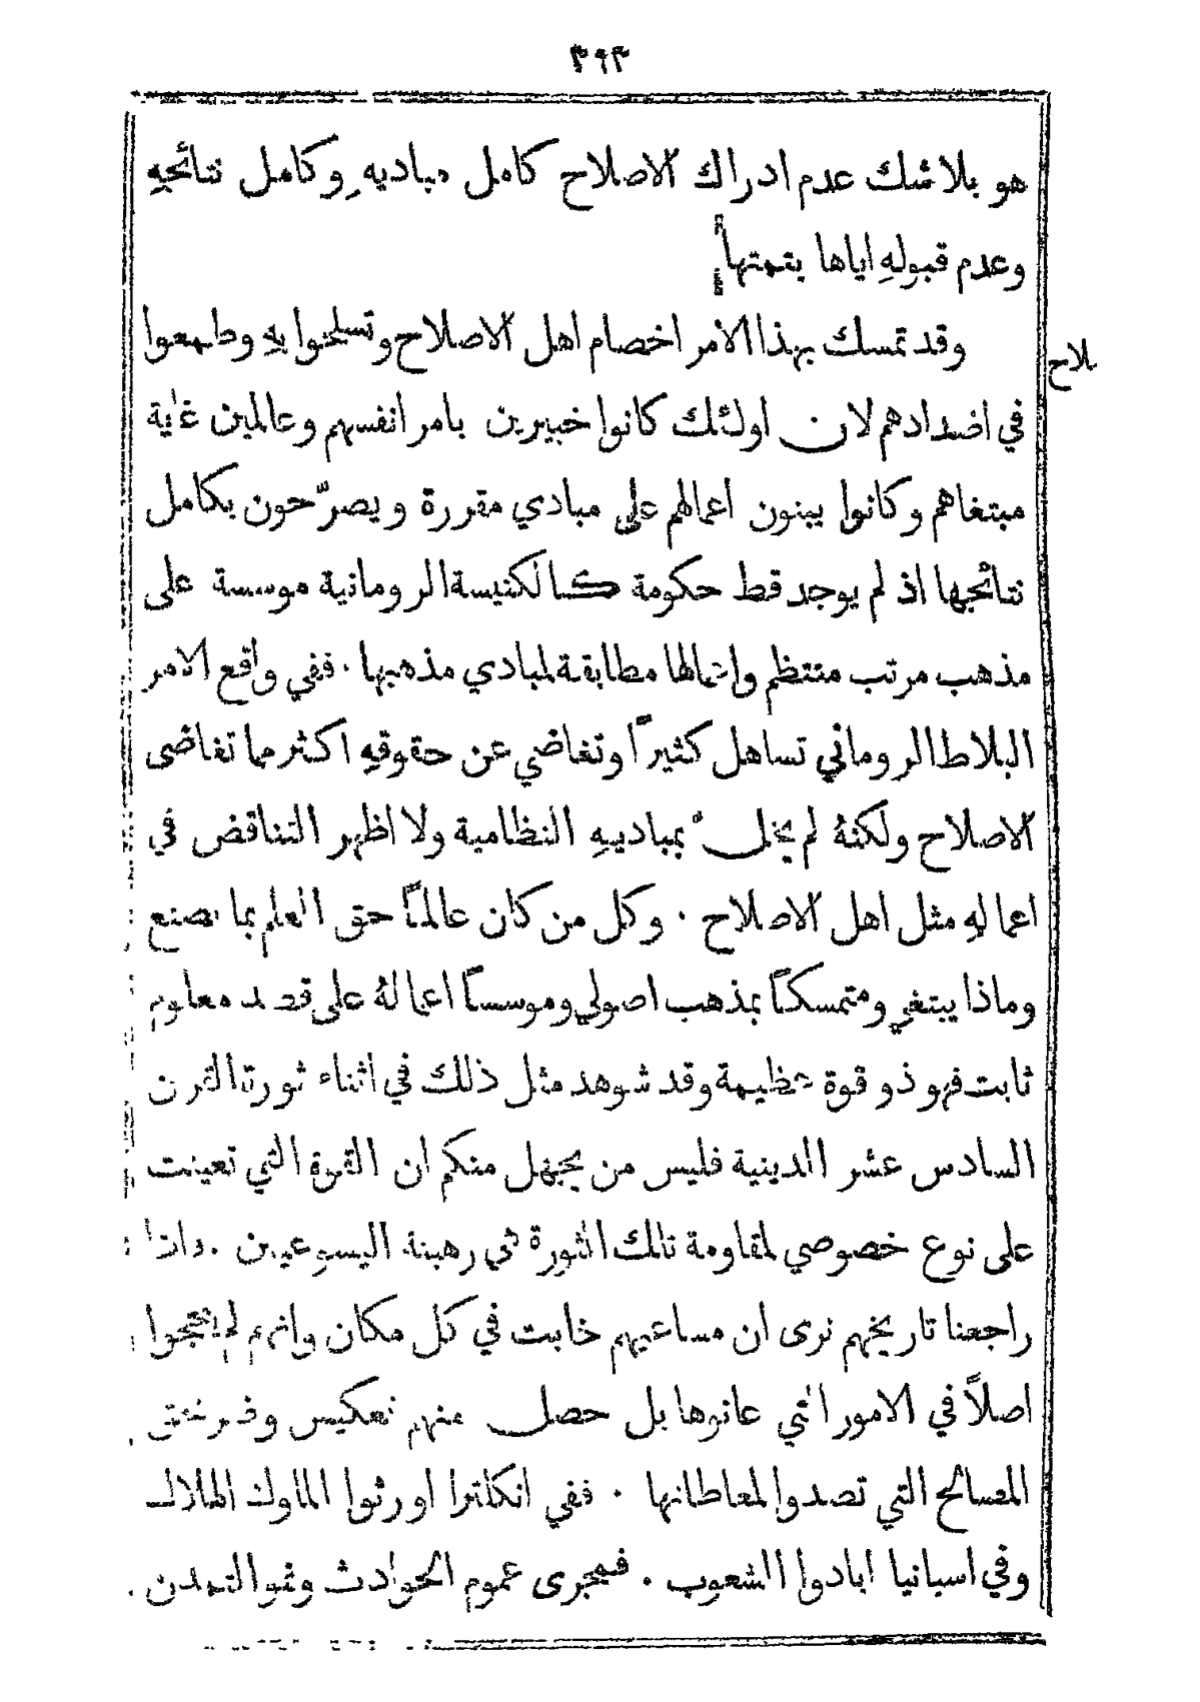 ٣٩٣
هو بلا شك عدم ادراك الاصلاح كامل مباديهِ وكامل نتائجهِ
وعدم قبولهِ اياها بتمتها
وقد تمسك بهذا الامر اخصام اهل الاصلاح وتسلحوا بهِ وطمعوا
لاح
في اضدادهم لان اولئك كانوا خبيرين بامر انفسهم وعالمين غاية
مبتغاهم وكانوا يبنون اعمالهم على مبادي مقررة ويصرّحون بكامل
نتائجها اذ لم يوجد قط حكومة كالكنيسة الرومانية موسسة على
مذهب مرتب منتظم واعمالها مطابقة لمبادي مذهبها . ففي واقع الامر
البلاط الروماني تساهل كثيراً وتغاضي عن حقوقهِ اكثر مما تغاضى
الاصلاح ولكنهُ لم يخل بمباديهِ النظامية ولا اظهر التناقض في
اعمالهِ مثل اهل الاصلاح . وكل من كان عالماً حق العلم بما يصنع
وماذا يبتغي ومتمسكاً بمذهب اصولي وموسساً اعمالهُ على قصد معلوم
ثابت فهو ذو قوة عظيمة وقد شوهد مثل ذلك في اثناء ثورة القرن
السادس عشر الدينية فليس من يجهل منكم ان القوة التي تعينت
على نوع خصوصي لمقاومة تلك الثورة هي رهبنة اليسوعيين . واذا
راجعنا تاريخهم نرى ان مساعيهم خابت في كل مكان وانهم لم ينجحوا
اصلاً في الامور التي عانوها بل حصل منهم تعكيس و
المصالح التي تصدوا لمعاطاتها . ففي انكلترا اورثوا الملوك الهلاك
وفي اسبانيا ابادوا الشعوب . فمجرى عموم الحوادث ونمو التمدن .